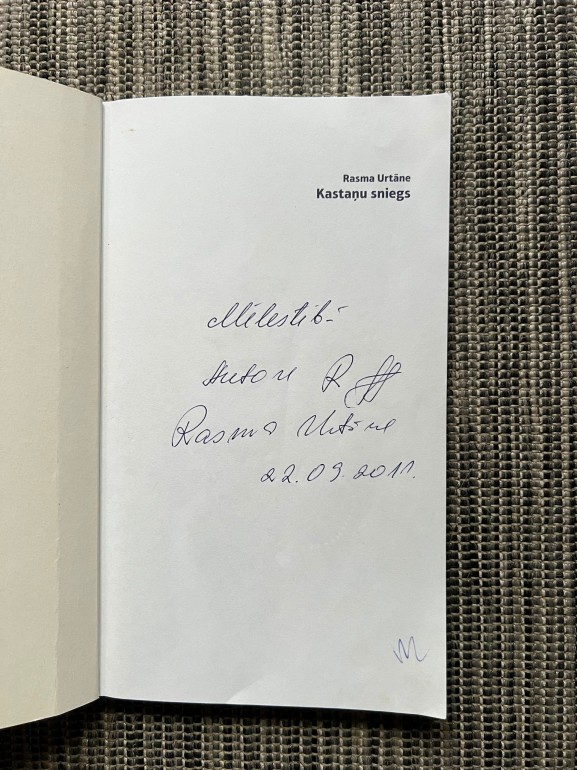 Rasma Urtāne
Kastaņu sniegs
Mīlestībā
Autore R
Rasma Urtāne
22.09.2011.
M